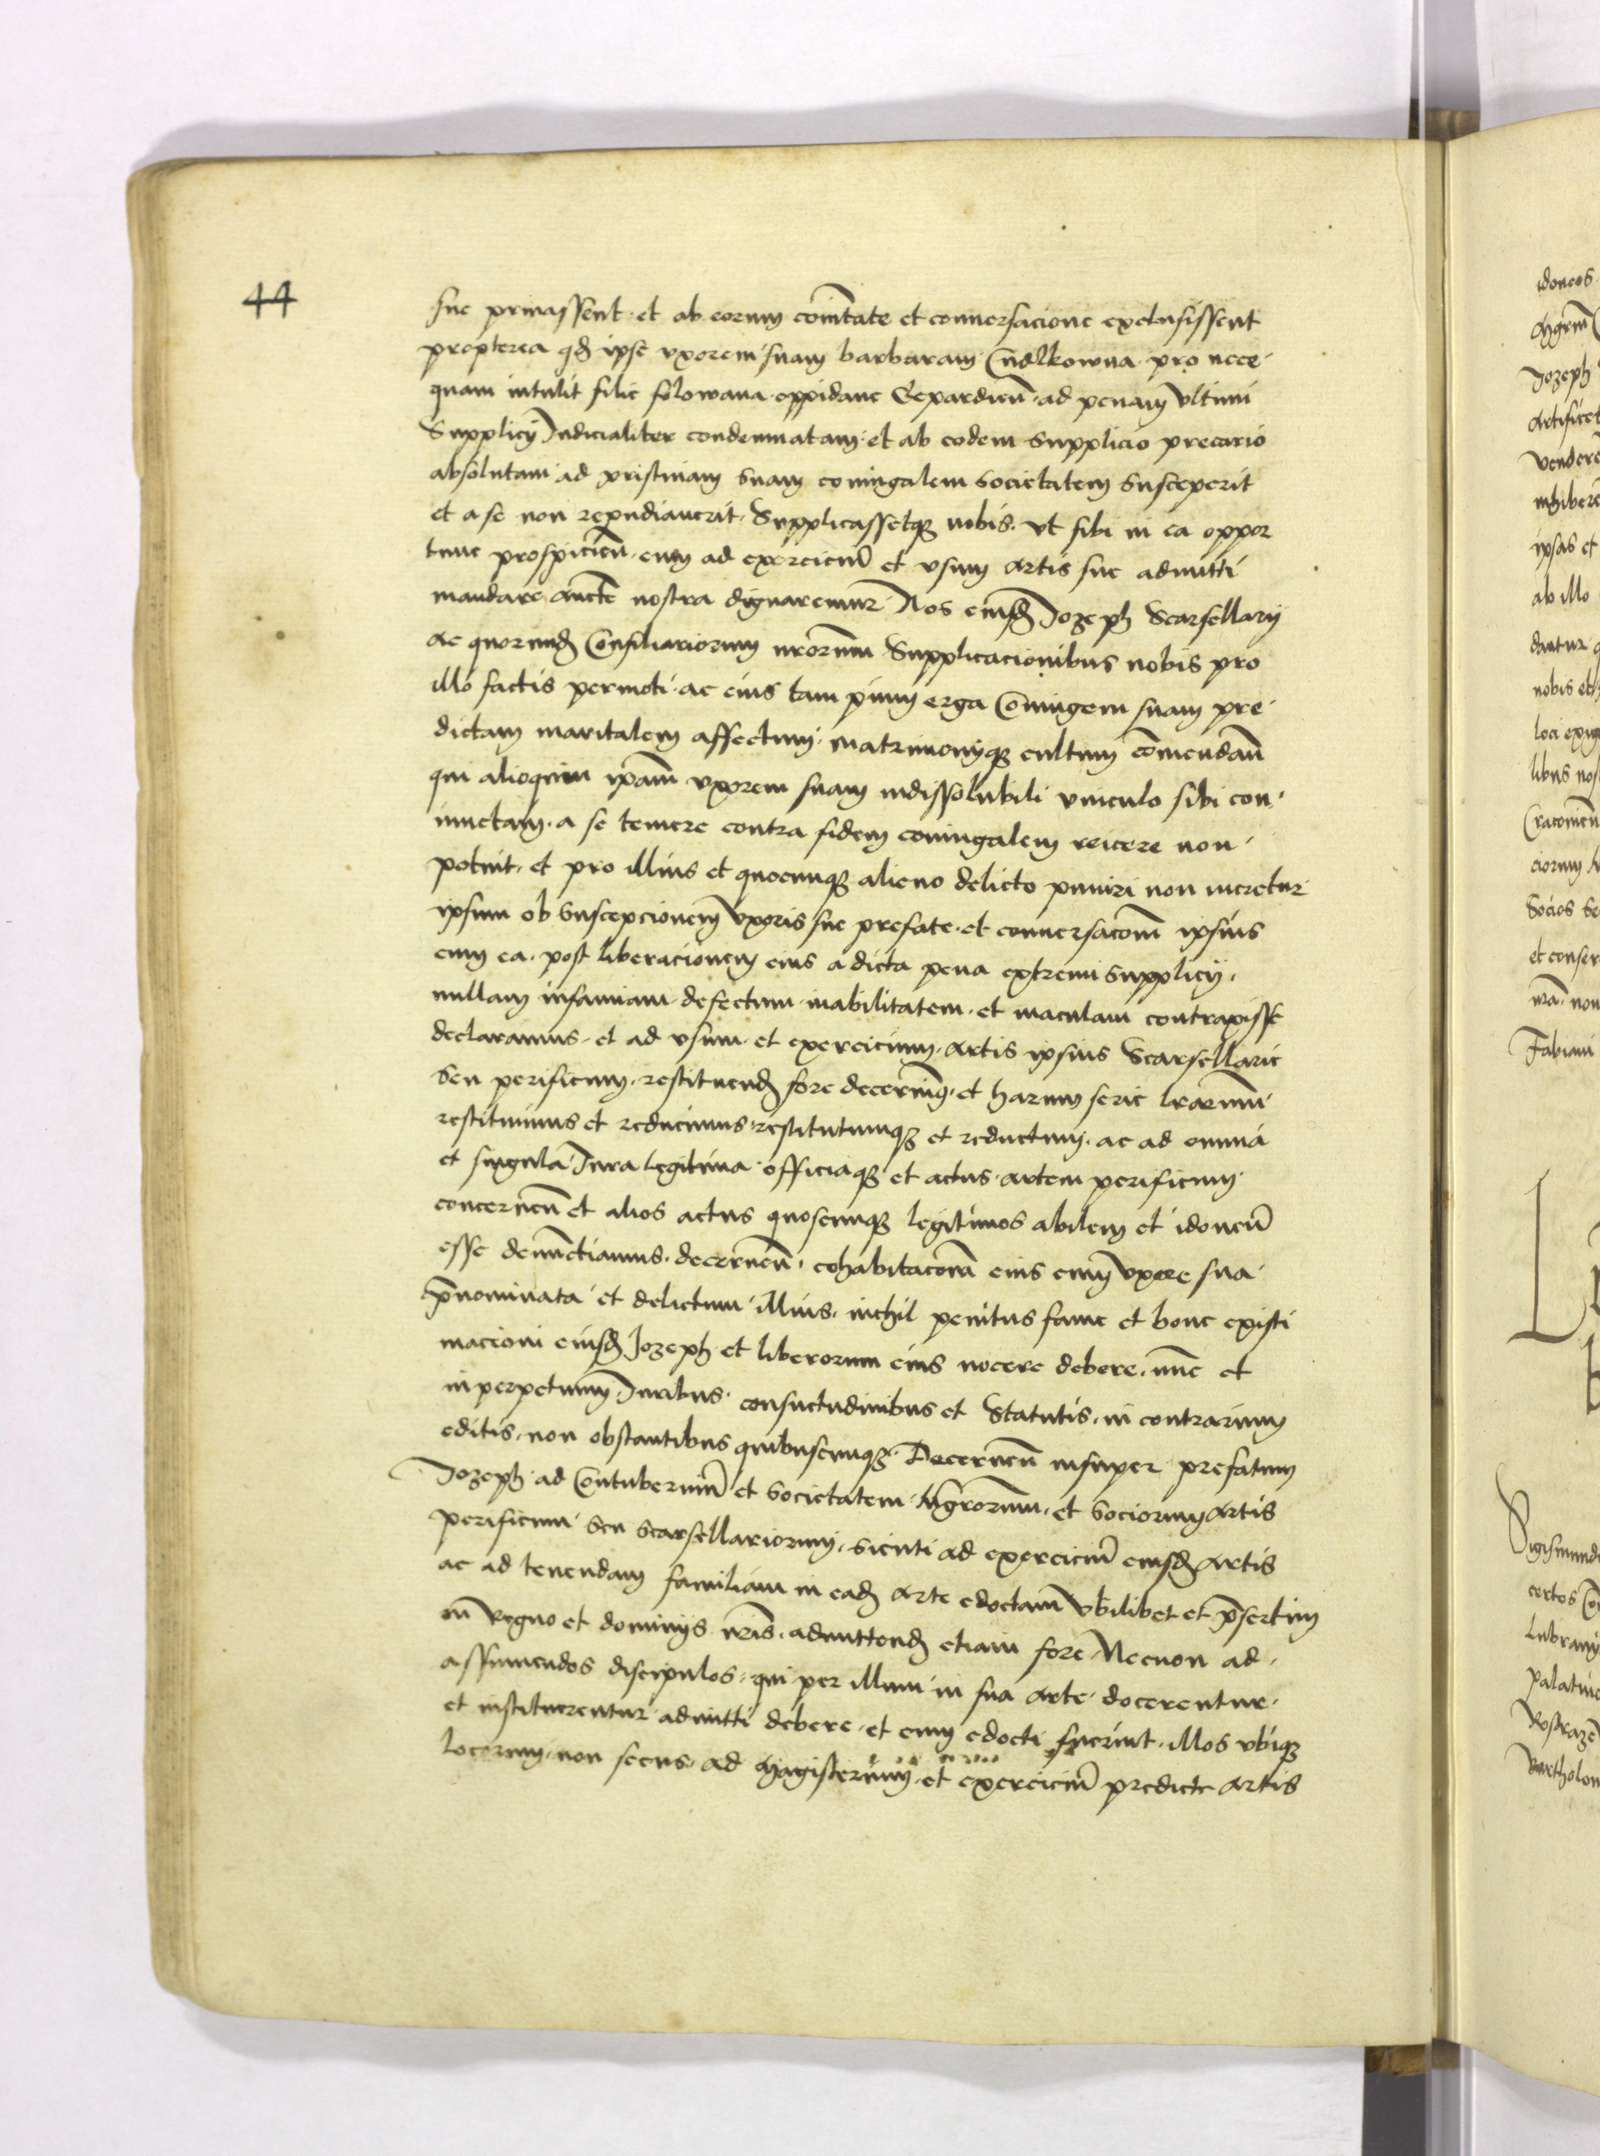 44
sue priuassent et ab eorum comitate et conuersacione exclusissent
propterea qd ipse vxorem suam barbaram pro nece
quam intulit filie oppidane ad penam vltimi
Supplicij Iudicialiter condemnatam et ab eodem supplicio precario
absolutam ad pristinam suam coniugalem societatem susceperit
et a se non repudiauerit. Supplicassetqz nobis. vt sibi in ea oppor
tune prospicien eum ad exercicium et vsum artis sue admitti
mandare aucte nostra dignaremur Nos eiusd Jozeph Scarsellarij
ac quorund Consiliariorum nrorum Supplicacionibus nobis pro
illo factis permoti ac eius tam pium erga Coniugem suam pre
dictam maritalem affectum matrimonijqz cultum comendan
qui alioquin ipam vxorem suam indissolubili vinculo sibi con
iunctam. a se temere contra fidem coniugalem reicere non
potuit. et pro illius et quocunqz alieno delicto puniri non meretur
ipsum ob suscepcionem vxoris sue prefate. et conuersacom ipsius
cum ea. post liberacionem eius a dicta pena extremi supplicij.
nullam infamiam defectum inabilitatem. et maculam contraxisse
declaramus. et ad vsum et exercicium artis ipsius Scarsellarie
seu perificum. restituend fore decernim. et harum serie lrarum
restituimus et reducimus restitutumqz et reductum. ac ad omnia
et singula Iura legitima officiaqz et actus artem perificum
concernen et alios actus quoscunqz legitimos abilem et idoneum
esse denunctiamus. decernen. cohabitacom eius cum vxore sua
pnominata et delictum illius. nichil penitus fame et bone existi
macioni eiusd Jozeph et liberorum eius nocere debere. nunc et
in perpetuum Iuribus consuetudinibus et Statutis. in contrarium
editis. non obstantibus quibuscunqz. Decernen insuper prefatum
Jozeph ad Contubernium et societatem Mgrorum. et sociorum artis
perificum seu scarsellariorum. sicuti ad exercicium eiusd artis
ac ad tenendam familiam in ead arte edoctam vbilibet et psertim
in regno et dominijs nris. admittend etiam fore Necnon ad
assumendos discipulos. qui per illum in sua arte docerentur
et instituerentur admitti debere. et cum edocti fuerint. illos vbiqz
locorum. non secus ad Magisterium. et exercicium predicte artis